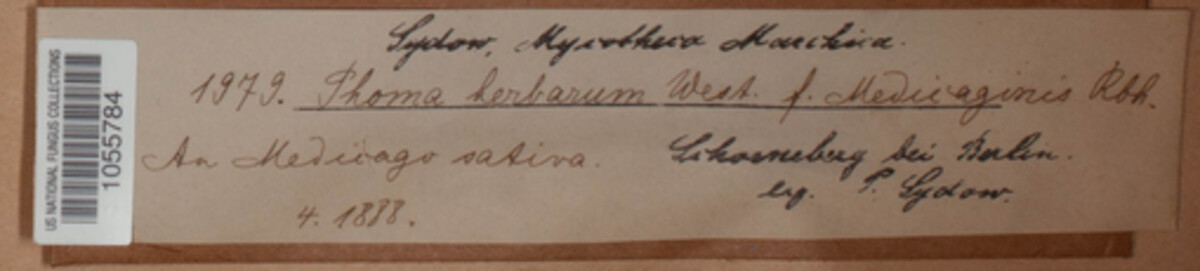 Sydow, Mycotheca Marchica.
1979. Phoma herbarum West. f. Medicaginis Rbh.
An Medicago sativa. Schoeneberg bei Berlin.
4. 1888. leg. P. Sydow.
US NATIONAL FUNGUS COLLECTIONS
1055784